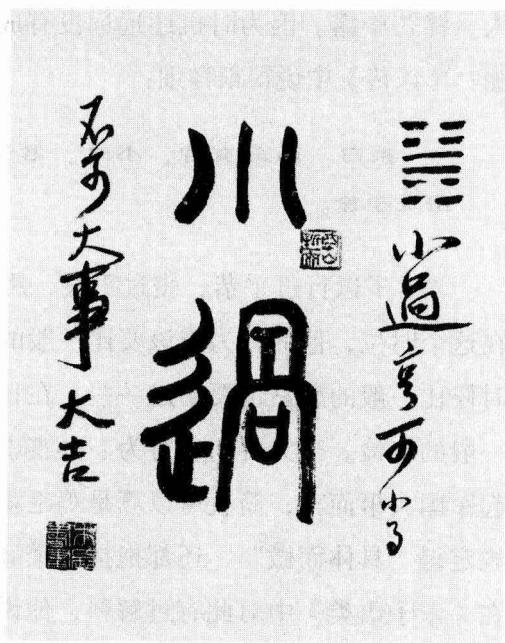 ䷽小過亨可小事
小過
不可大事大吉